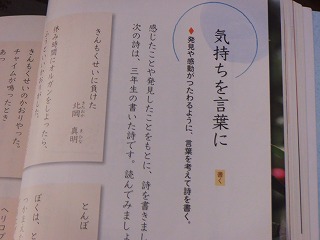 気持ちを言葉に
書く
◆発見や感動がつたわるように、言葉を考えて詩を書く。
感じたことや発見したことをもとに、詩を書きまし
次の詩は、三年生の書いた詩です。読んでみましょ
きんもくせいに負けた
北岡 真明
休み時間にオルガンをしよったら、
きんもくせいのかおりやった。
チャイムが鳴ったとき、
あっ
とんぼ
ぼくは、と
ヘリコプ